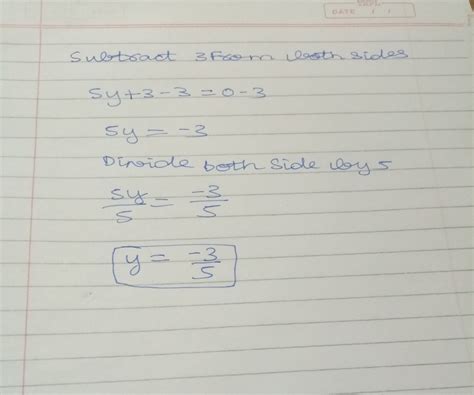 DATE / /
Subtract 3 From both sides
5y+3-3=0-3
5y = -3
Divide both side by 5
5y/5 = -3/5
y = -3/5